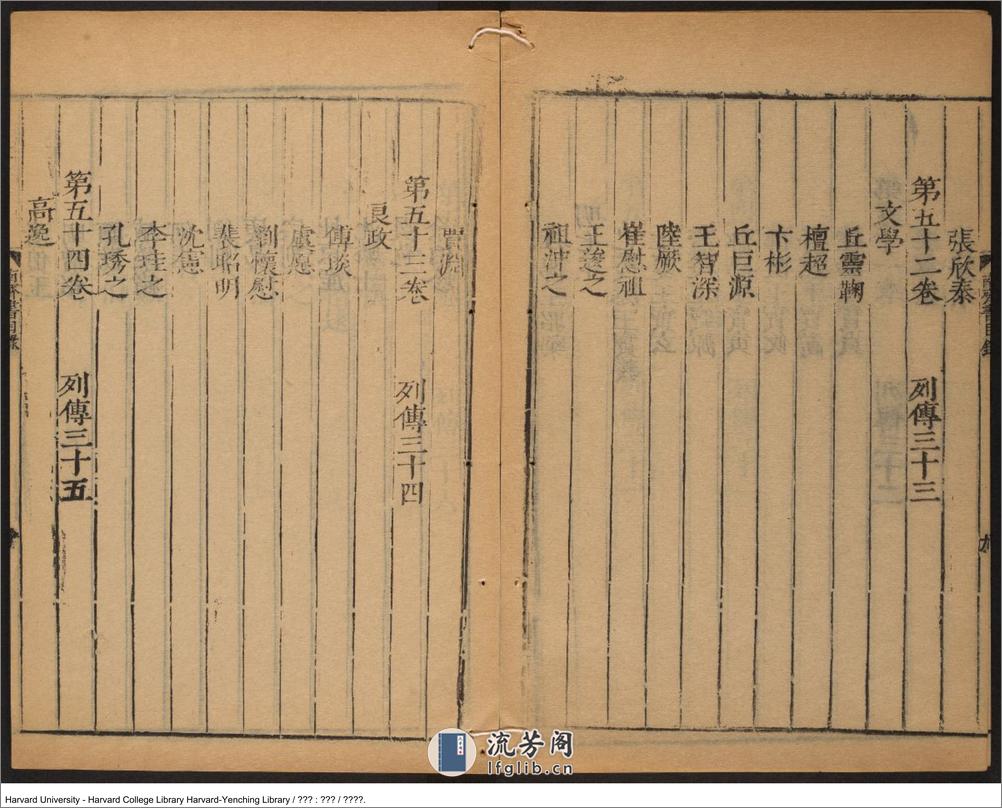 張欣泰
第五十二卷 列傳三十三
文學
丘靈鞠
檀超
卞彬
丘巨源
王智深
陸厥
崔慰祖
王逡之
祖沖之
賈淵
第五十三卷 列傳三十四
良政
傅琰
虞愿
劉懷慰
裴昭明
沈憲
李珪之
孔琇之
第五十四卷 列傳三十五
高逸
南齊書目錄
流芳阁
lfglib.cn
Harvard University - Harvard College Library Harvard-Yenching Library / ??? : ??? / ????.